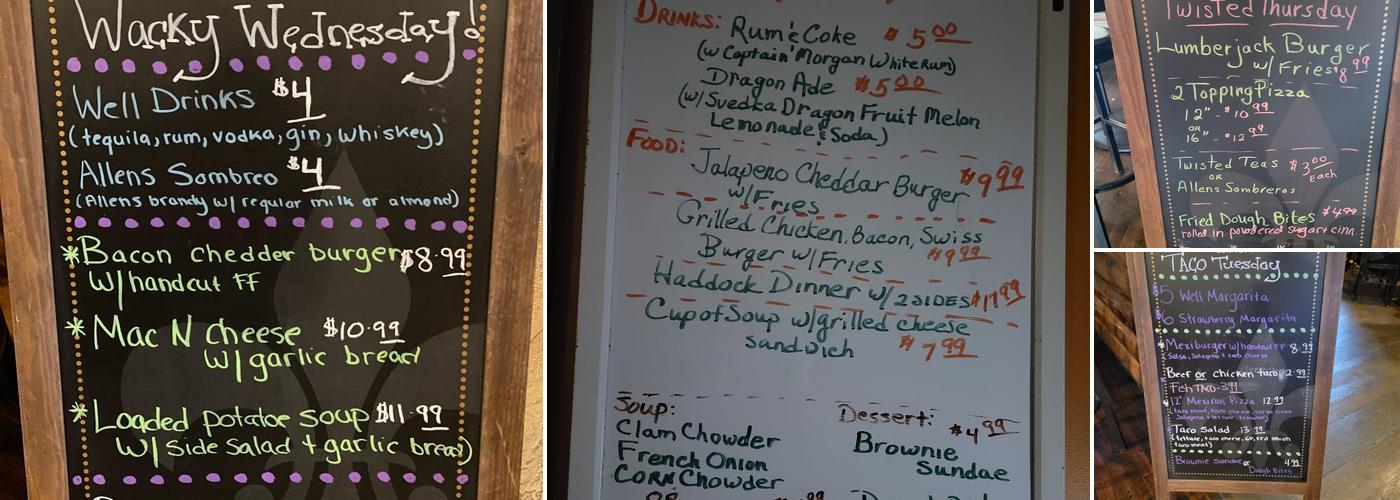 Wacky Wednesday!
Well Drinks $4
(tequila, rum, vodka, gin, whiskey)
Allens Sombreo $4
(Allens brandy w/ regular milk or almond)
*Bacon chedder burger $8.99
w/handcut FF
*Mac N Cheese $10.99
w/garlic bread
*Loaded potatoe soup $11.99
w/ Side Salad + garlic bread)
DRINKS: Rum & Coke $5.00
(w Captain Morgan White Rum)
Dragon Ade $5.00
(w/Svedka Dragon Fruit Melon
Lemonade & Soda)
FOOD:
Jalapeno Cheddar Burger $9.99
w/Fries
Grilled Chicken, Bacon, Swiss
Burger w/Fries $9.99
Haddock Dinner w/ 2 SIDES $17.99
Cup of Soup w/grilled cheese
sandwich $7.99
Soup:
Clam Chowder
French Onion
Corn Chowder
OR
Dessert: $4.99
Brownie
Sundae
Twisted Thursday
Lumberjack Burger
w/ Fries $8.99
2 Topping Pizza
12" - $10.99
OR
16" - $12.99
Twisted Teas $3.00
OR Each
Allens Sombreros
Fried Dough Bites $4.99
rolled in powdered sugar + cinn.
TACO Tuesday
$5 Well Margarita
$6 Strawberry Margarita
Mexiburger w/handcut FF 8.99
(Salsa, Jalapeno + taco cheese)
Beer or chicken taco 2.99
Fish TACO 3.99
12" Mexican Pizza 12.99
(taco meat, taco cheese, salsa
Taco Salad 13.99
(lettuce, taco cheese, red onion
taco meat)
Brownie Sundae or 4.99
Dough Bites